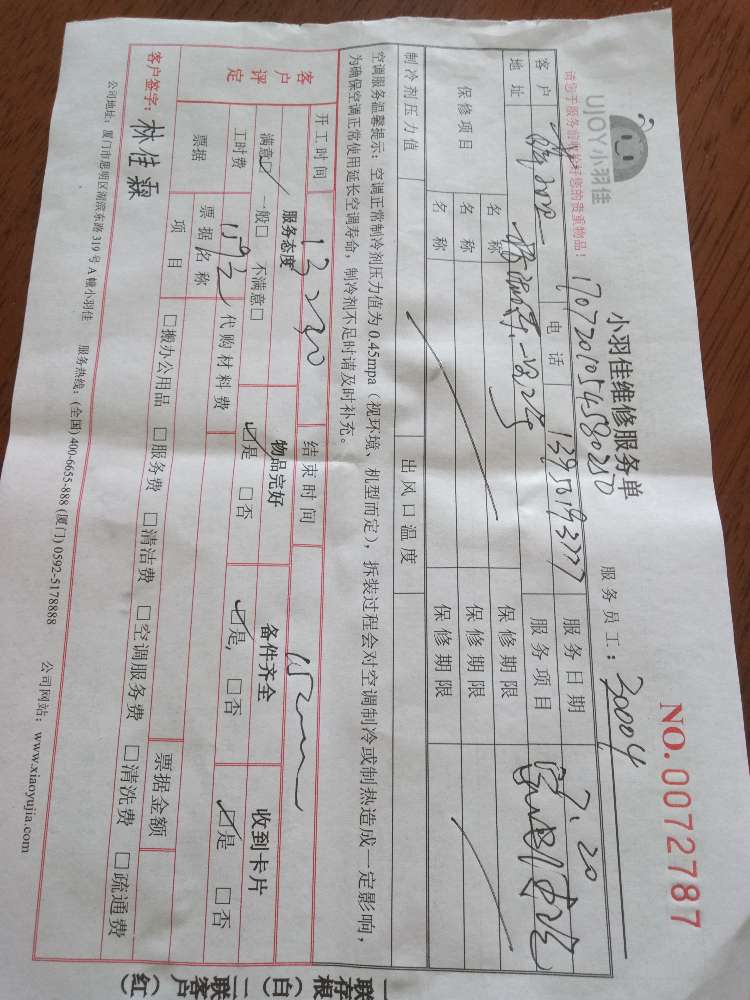 UJOY小羽佳
请您于服务前收好您的贵重物品!
小羽佳维修服务单
NO.0072787
1707201054580250
服务员工: 30004
客户 电话 13950193777 服务日期 7.20
地址 服务项目
保修项目 名称 保修期限
名称 保修期限
名称 保修期限
制冷剂压力值 出风口温度
空调服务温馨提示: 空调正常制冷剂压力值为 0.45mpa (视环境、机型而定), 拆装过程会对空调制冷或制热造成一定影响,
为确保空调正常使用延长空调寿命, 制冷剂不足时请及时补充。
开工时间 13:30 结束时间
客户评定 服务态度 物品完好 备件齐全 收到卡片
满意☑ 一般□ 不满意□ ☑是 □否 ☑是 □否 ☑是 □否
工时费 代购材料费
票据 票据名称 票据金额
项目 □搬办公用品 □服务费 □清洁费 □空调服务费 □清洗费 □疏通费
客户签字: 林佳霖
公司地址: 厦门市思明区湖滨东路 319 号 A 幢小羽佳 服务热线: (全国) 400-6655-888 (厦门) 0592-5178888 公司网站: www.xiaoyujia.com
一联存根(白)
二联客户(红)